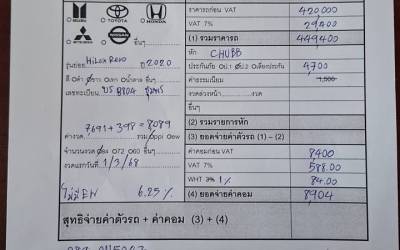 ISUZU TOYOTA HONDA
MITSUBISHI NISSAN อื่นๆ
ราคารถก่อน VAT 420,000
VAT 7% 29,400
(1) รวมราคารถ 449,400
รุ่นย่อย Hilux Revo ปี 2020
หัก CHUBB
สี ดำ ขาว เทา น้ำตาล อื่นๆ
ประกันภัย ป.1 ป.2 เลือกประกัน 4,700
เลขทะเบียน 8804 ชุมพร
ค่าธรรมเนียม 1,500
งวดล่วงหน้า งวด
7691 + 398 = 8089
(2) รวมรายการหัก
ค่างวด รวม ppi ew
(3) ยอดจ่ายค่าตัวรถ (1) - (2)
จำนวนงวด 84 72 60 อื่นๆ
ค่าคอมก่อน VAT 8400
งวดแรกวันที่ 1/3/68
VAT 7% 588.00
WHT 3% 1% 84.00
ไม่มี EW 6.25 %
(4) ยอดจ่ายค่าคอม 8904
สุทธิจ่ายค่าตัวรถ + ค่าคอม (3) + (4)